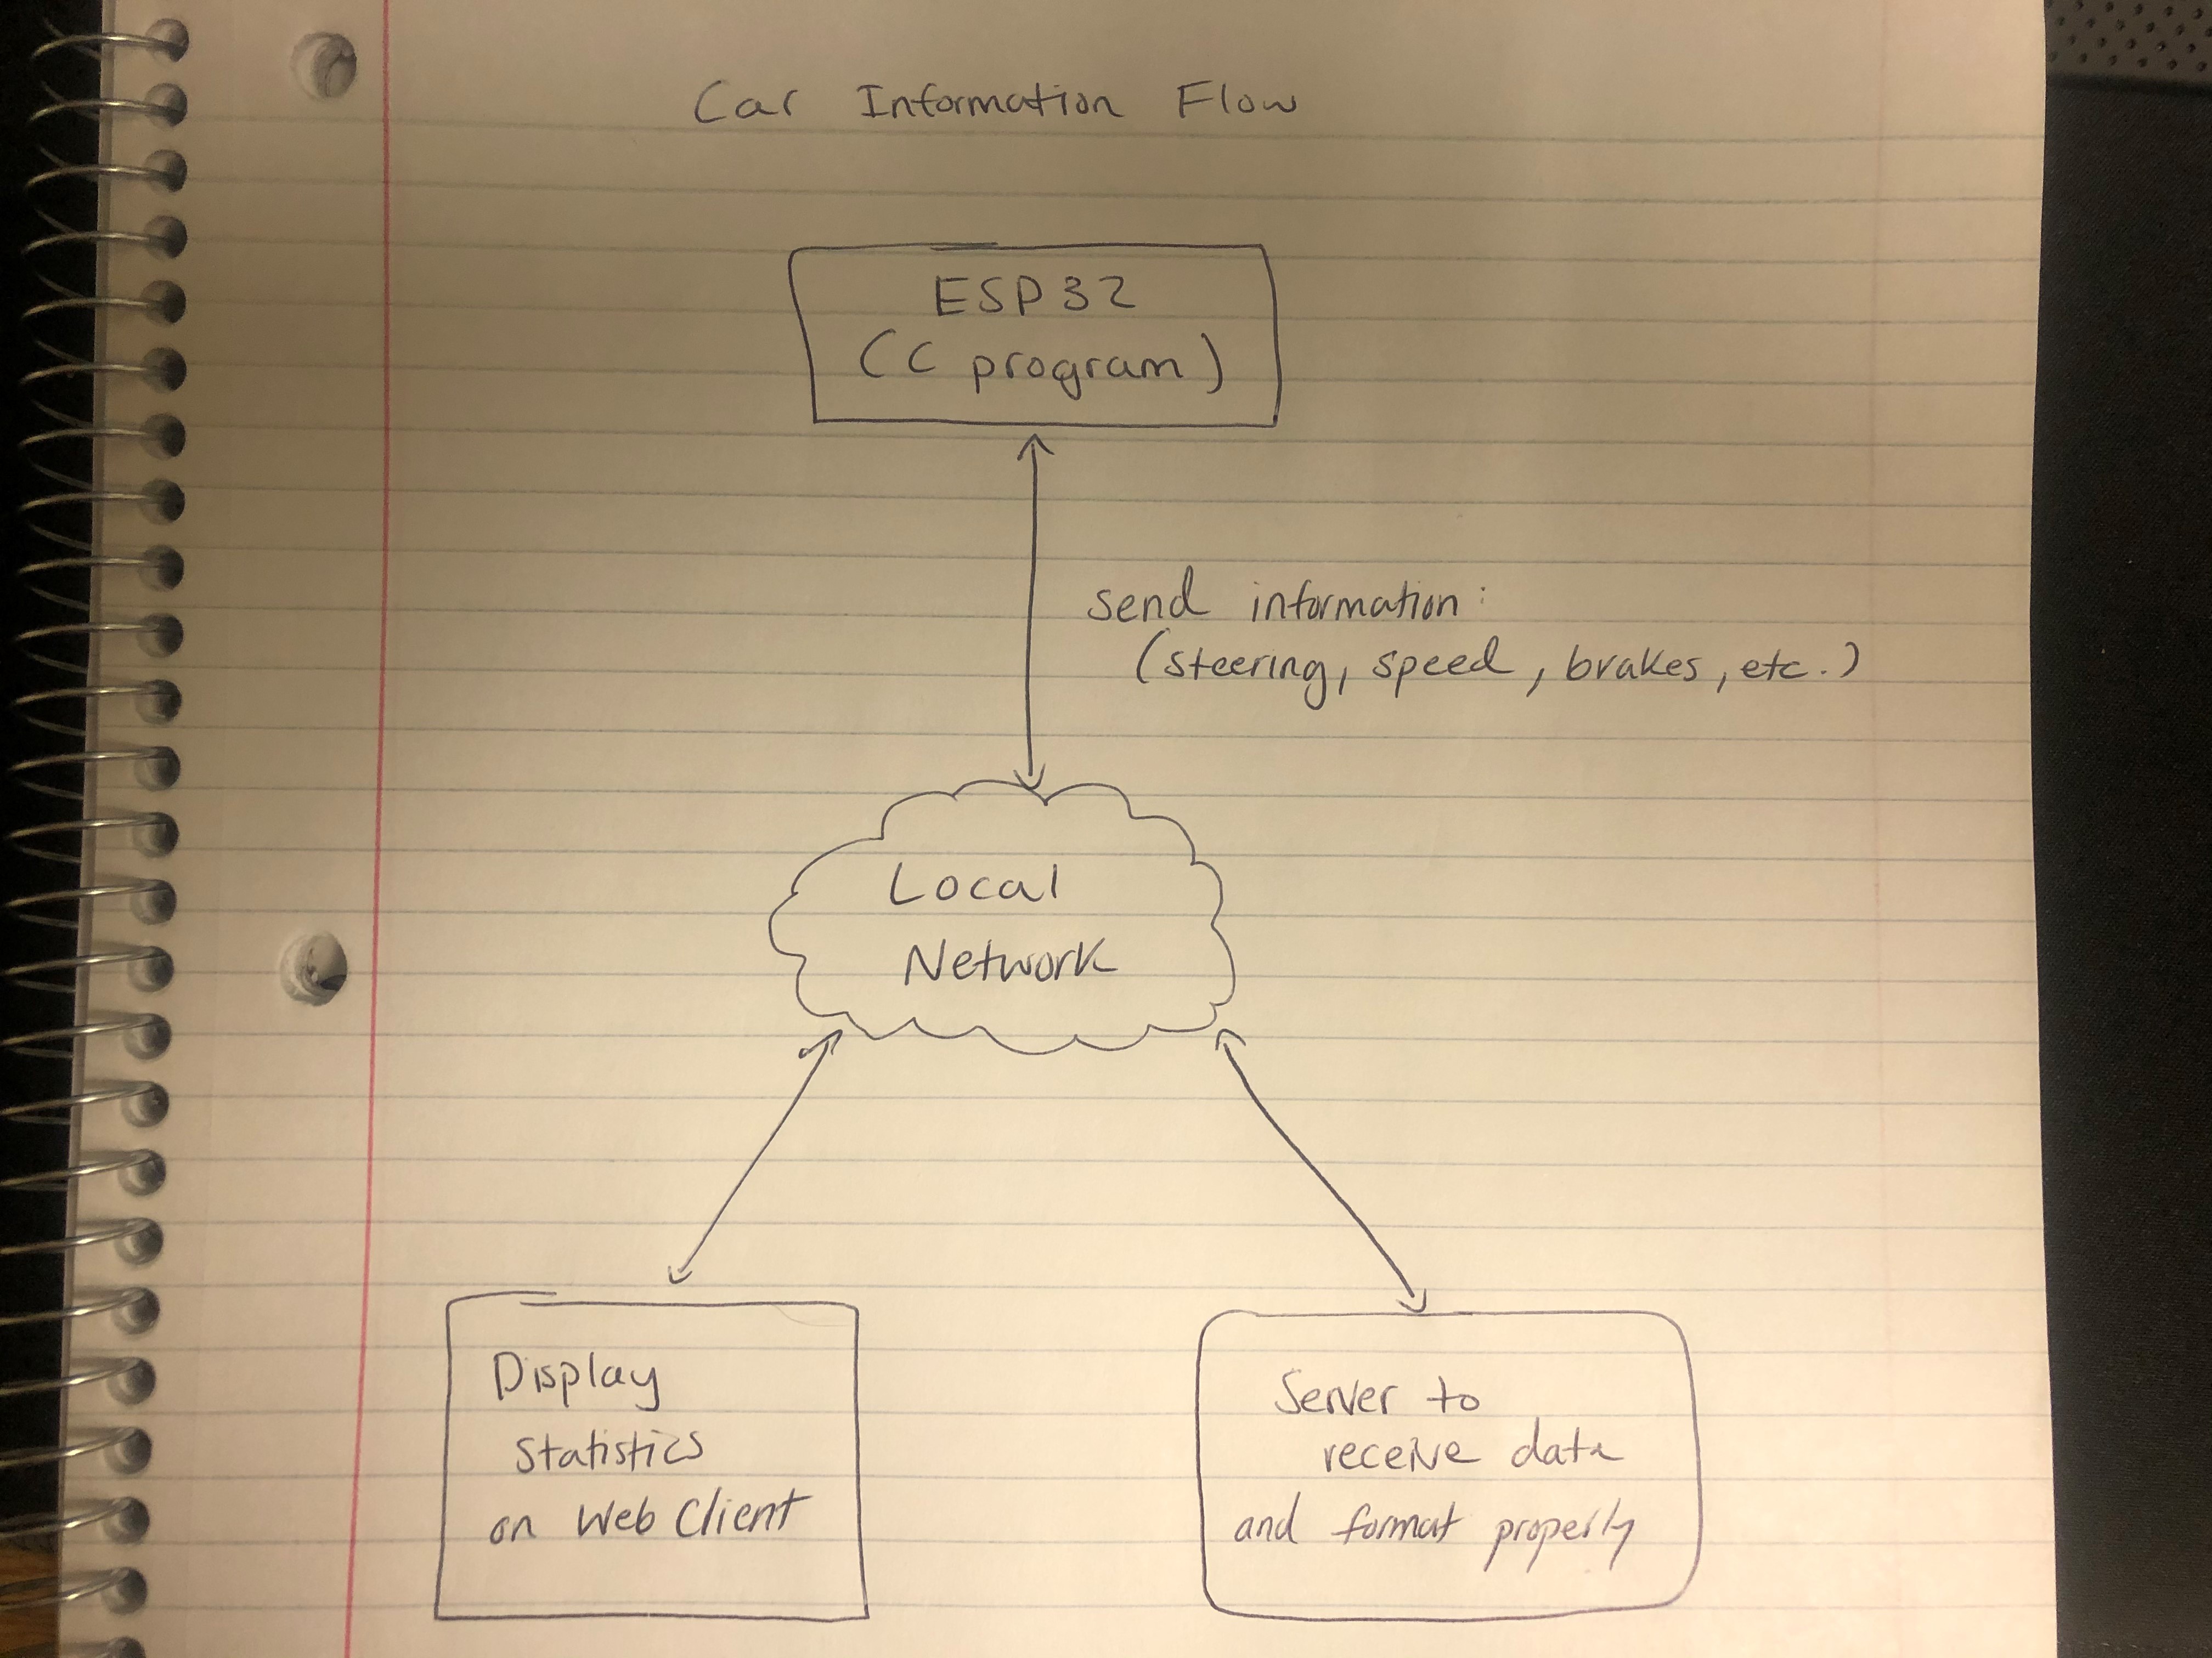 Car Information Flow
ESP32
(C program)
send information:
(steering, speed, brakes, etc.)
Local
Network
Display
Statistics
on Web Client
Server to
receive data
and format properly